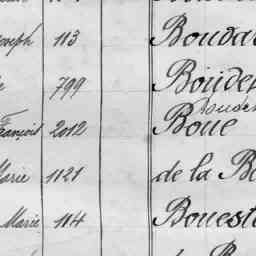 oseph 113 Bouda
799 Boude
François 2012 Boue
Marie 1121 de la Bo
Marie 114 Bouest